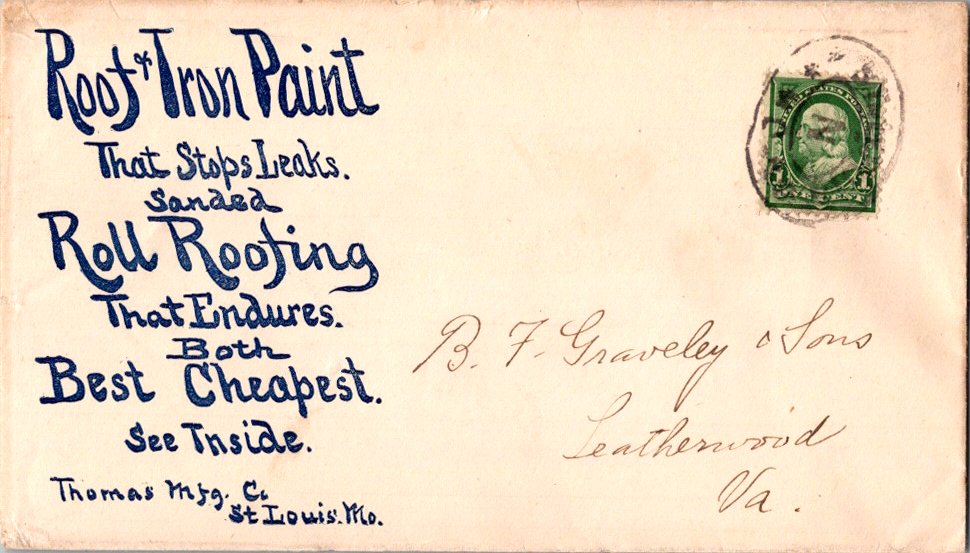 Roof & Iron Paint
That Stops Leaks.
Sanded
Roll Roofing
That Endures.
Both
Best Cheapest.
See Inside.
Thomas Mfg. Co
St Louis. Mo.
1 1
ONE CENT
B. F. Graveley & Sons
Leatherwood
Va.